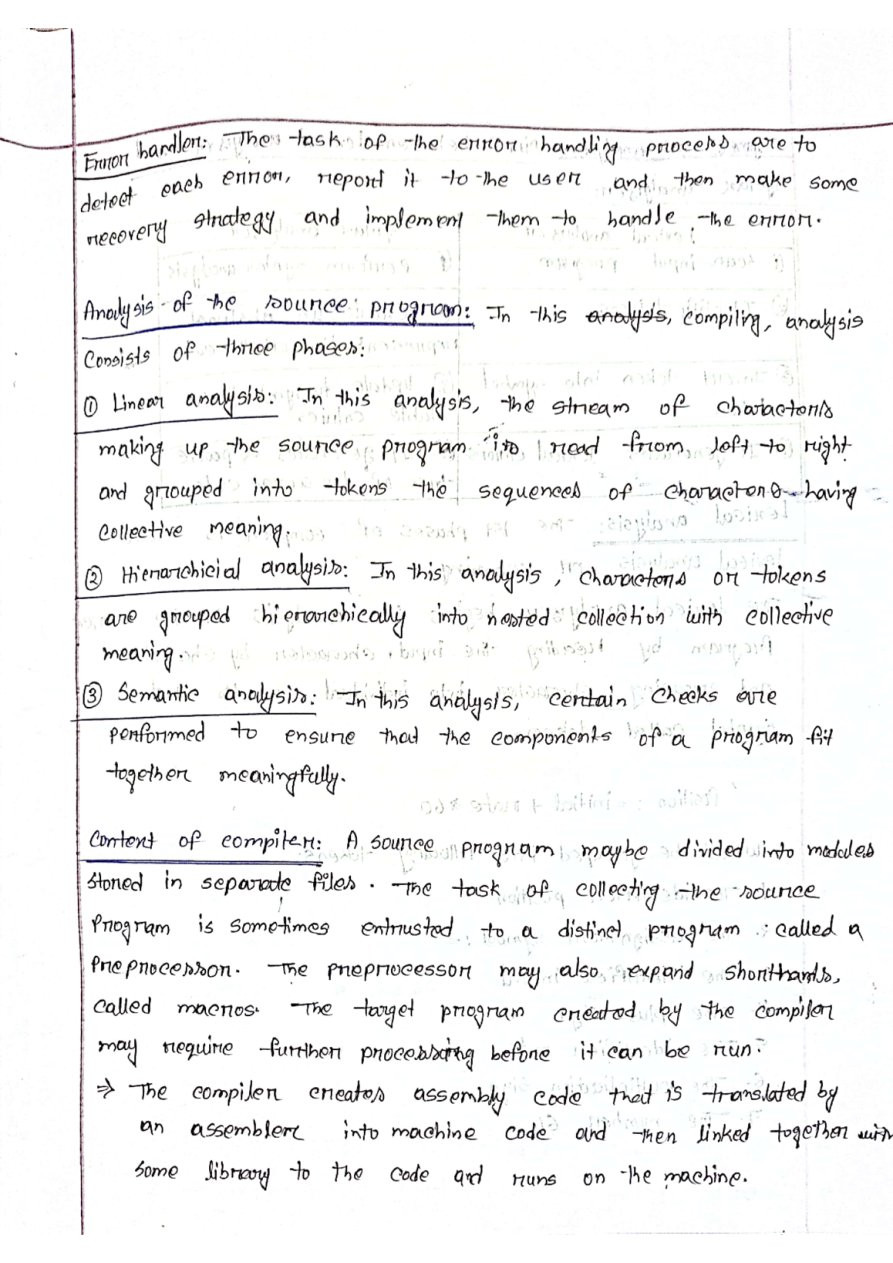 Error handler: The task of the error handling process are to
detect each error, report it to the user and then make some
recovery strategy and implement them to handle the error.
Analysis of the source program: In this analysis, compiling, analysis
Consists of three phases:
① Linear analysis: In this analysis, the stream of characters
making up the source program is read from left to right
and grouped into tokens the sequences of characters having
collective meaning.
② Hierarchicial analysis: In this analysis, characters or tokens
are grouped hierarchically into nested collection with collective
meaning.
③ Semantic analysis: In this analysis, certain checks are
performed to ensure that the components of a program fit
together meaningfully.
Content of compiler: A source program maybe divided into modules
stored in separate files. The task of collecting the source
Program is sometimes entrusted to a distinct program called a
Preprocessor. The preprocessor may also expand shorthands,
called macros. The target program created by the compiler
may require further processing before it can be run.
⇒ The compiler creates assembly code that is translated by
an assembler into machine code and then linked together with
some library to the code and runs on the machine.